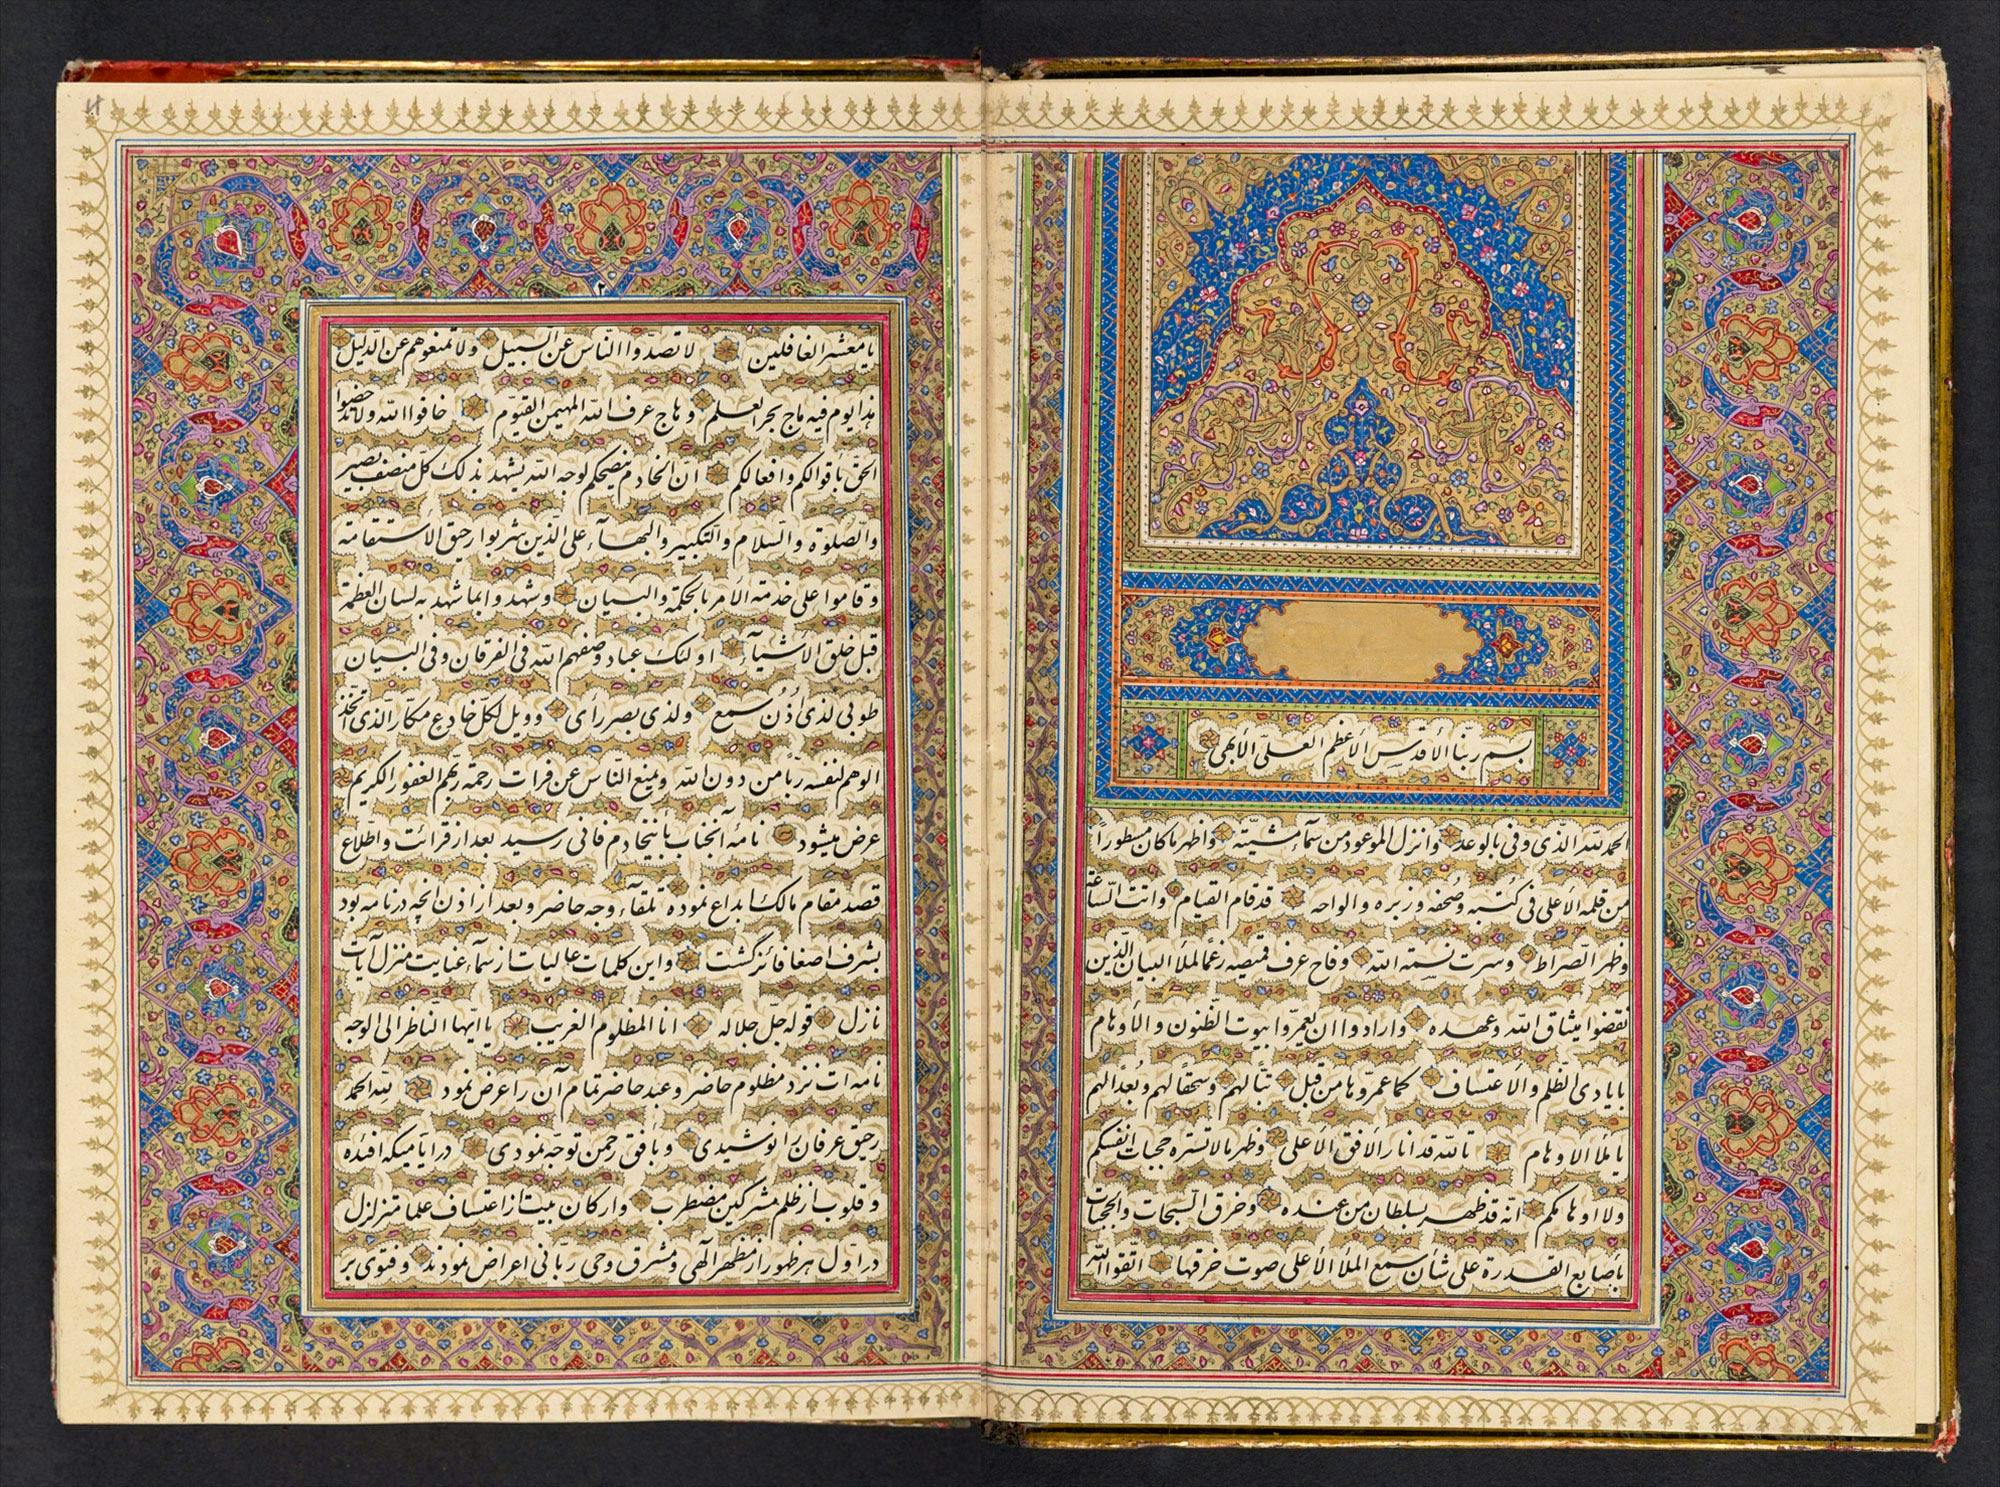 بسم ربنا الأقدس الأعظم العلی الأبهی
الحمد لله الذی وفی بالوعد وانزل الموعود من سماء مشیته واظهر ما کان مسطوراً
من قلمه الأعلی فی کتبه وصحفه وزبره والواحه قد قام القیام واتت الساعة
وظهر الصراط وسرت نسمة الله وفاح عرف قمیصه رغماً لملأ البیان الذین
نقضوا میثاق الله وعهده وارادوا ان یعمروا بیوت الظنون والأوهام
بایادی الظلم والاعتساف کما عمروها من قبل تباً لهم وسحقاً لهم وبعداً لهم
یا ملأ الاوهام تالله قد انار الأفق الأعلی وظهر ما لا تستره حجبات انفسکم
ولا اوهامکم انه قد ظهر بسلطان من عنده وخرق السبحات والحجبات
بأصابع القدرة علی شأن سمع الملأ الأعلی صوت خرقها اتقوا الله
یا معشر الغافلین لا تصدوا الناس عن السبیل ولا تمنعوهم عن الدلیل
هذا یوم فیه ماج بحر العلم وهاج عرف الله المهیمن القیوم خافوا الله ولا تدحضوا
الحق باقوالکم وافعالکم ان الخادم ینصحکم لوجه الله یشهد بذلک کل منصف بصیر
والصلوة والسلام والتکبیر والبهاء علی الذین شربوا رحیق الأستقامة
وقاموا علی خدمة الأمر بالحکمة والبیان وشهدوا بما شهد به لسان العظمة
قبل خلق الأشیاء اولئک عباد وصفهم الله فی الفرقان وفی البیان
طوبی لذی اُذُن سمع ولذی بصر رأی وویل لکل خادع مکار الذی اتخذ
الوهم لنفسه رباً من دون الله ویمنع الناس عن فرات رحمة ربهم الغفور الکریم
عرض میشود نامهٔ آنجناب باینخادم فانی رسید بعد از قرائت واطلاع
قصد مقام مالک ابداع نموده تلقاء وجه حاضر وبعد از اذن آنچه در نامه بود
بشرف اصغا فائز گشت واین کلمات عالیات از سماء عنایت منزل آیات
نازل قوله جل جلاله انا المظلوم الغریب یا ایها الناظر الی الوجه
نامه ات نزد مظلوم حاضر وعبد حاضر تمام آن را عرض نمود لله الحمد
رحیق عرفان را نوشیدی وبأفق رحمن توجه نمودی در ایامیکه افئده
وقلوب از ظلم مشرکین مضطرب وارکان بیت از اعتساف علما متزلزل
در اول هر ظهور از مظهر الهی ومشرق وحی ربانی اعراض نمودند وفتوی بر